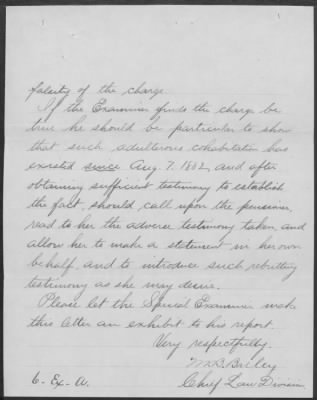 falsity of the charge.
If the Examiner finds the charge be
true he should be particular to show
that such adulterous cohabitation has
existed since Aug. 7. 1882, and after
obtaining sufficient testimony to establish
the fact, should call upon the pensioner,
read to her the adverse testimony taken, and
allow her to make a statement in her own
behalf, and to introduce such rebutting
testimony as she may desire.
Please let the Special Examiner make
this letter an exhibit to his report.
Very respectfully,
Bailey
Chief Law Division
6-Ex-A.